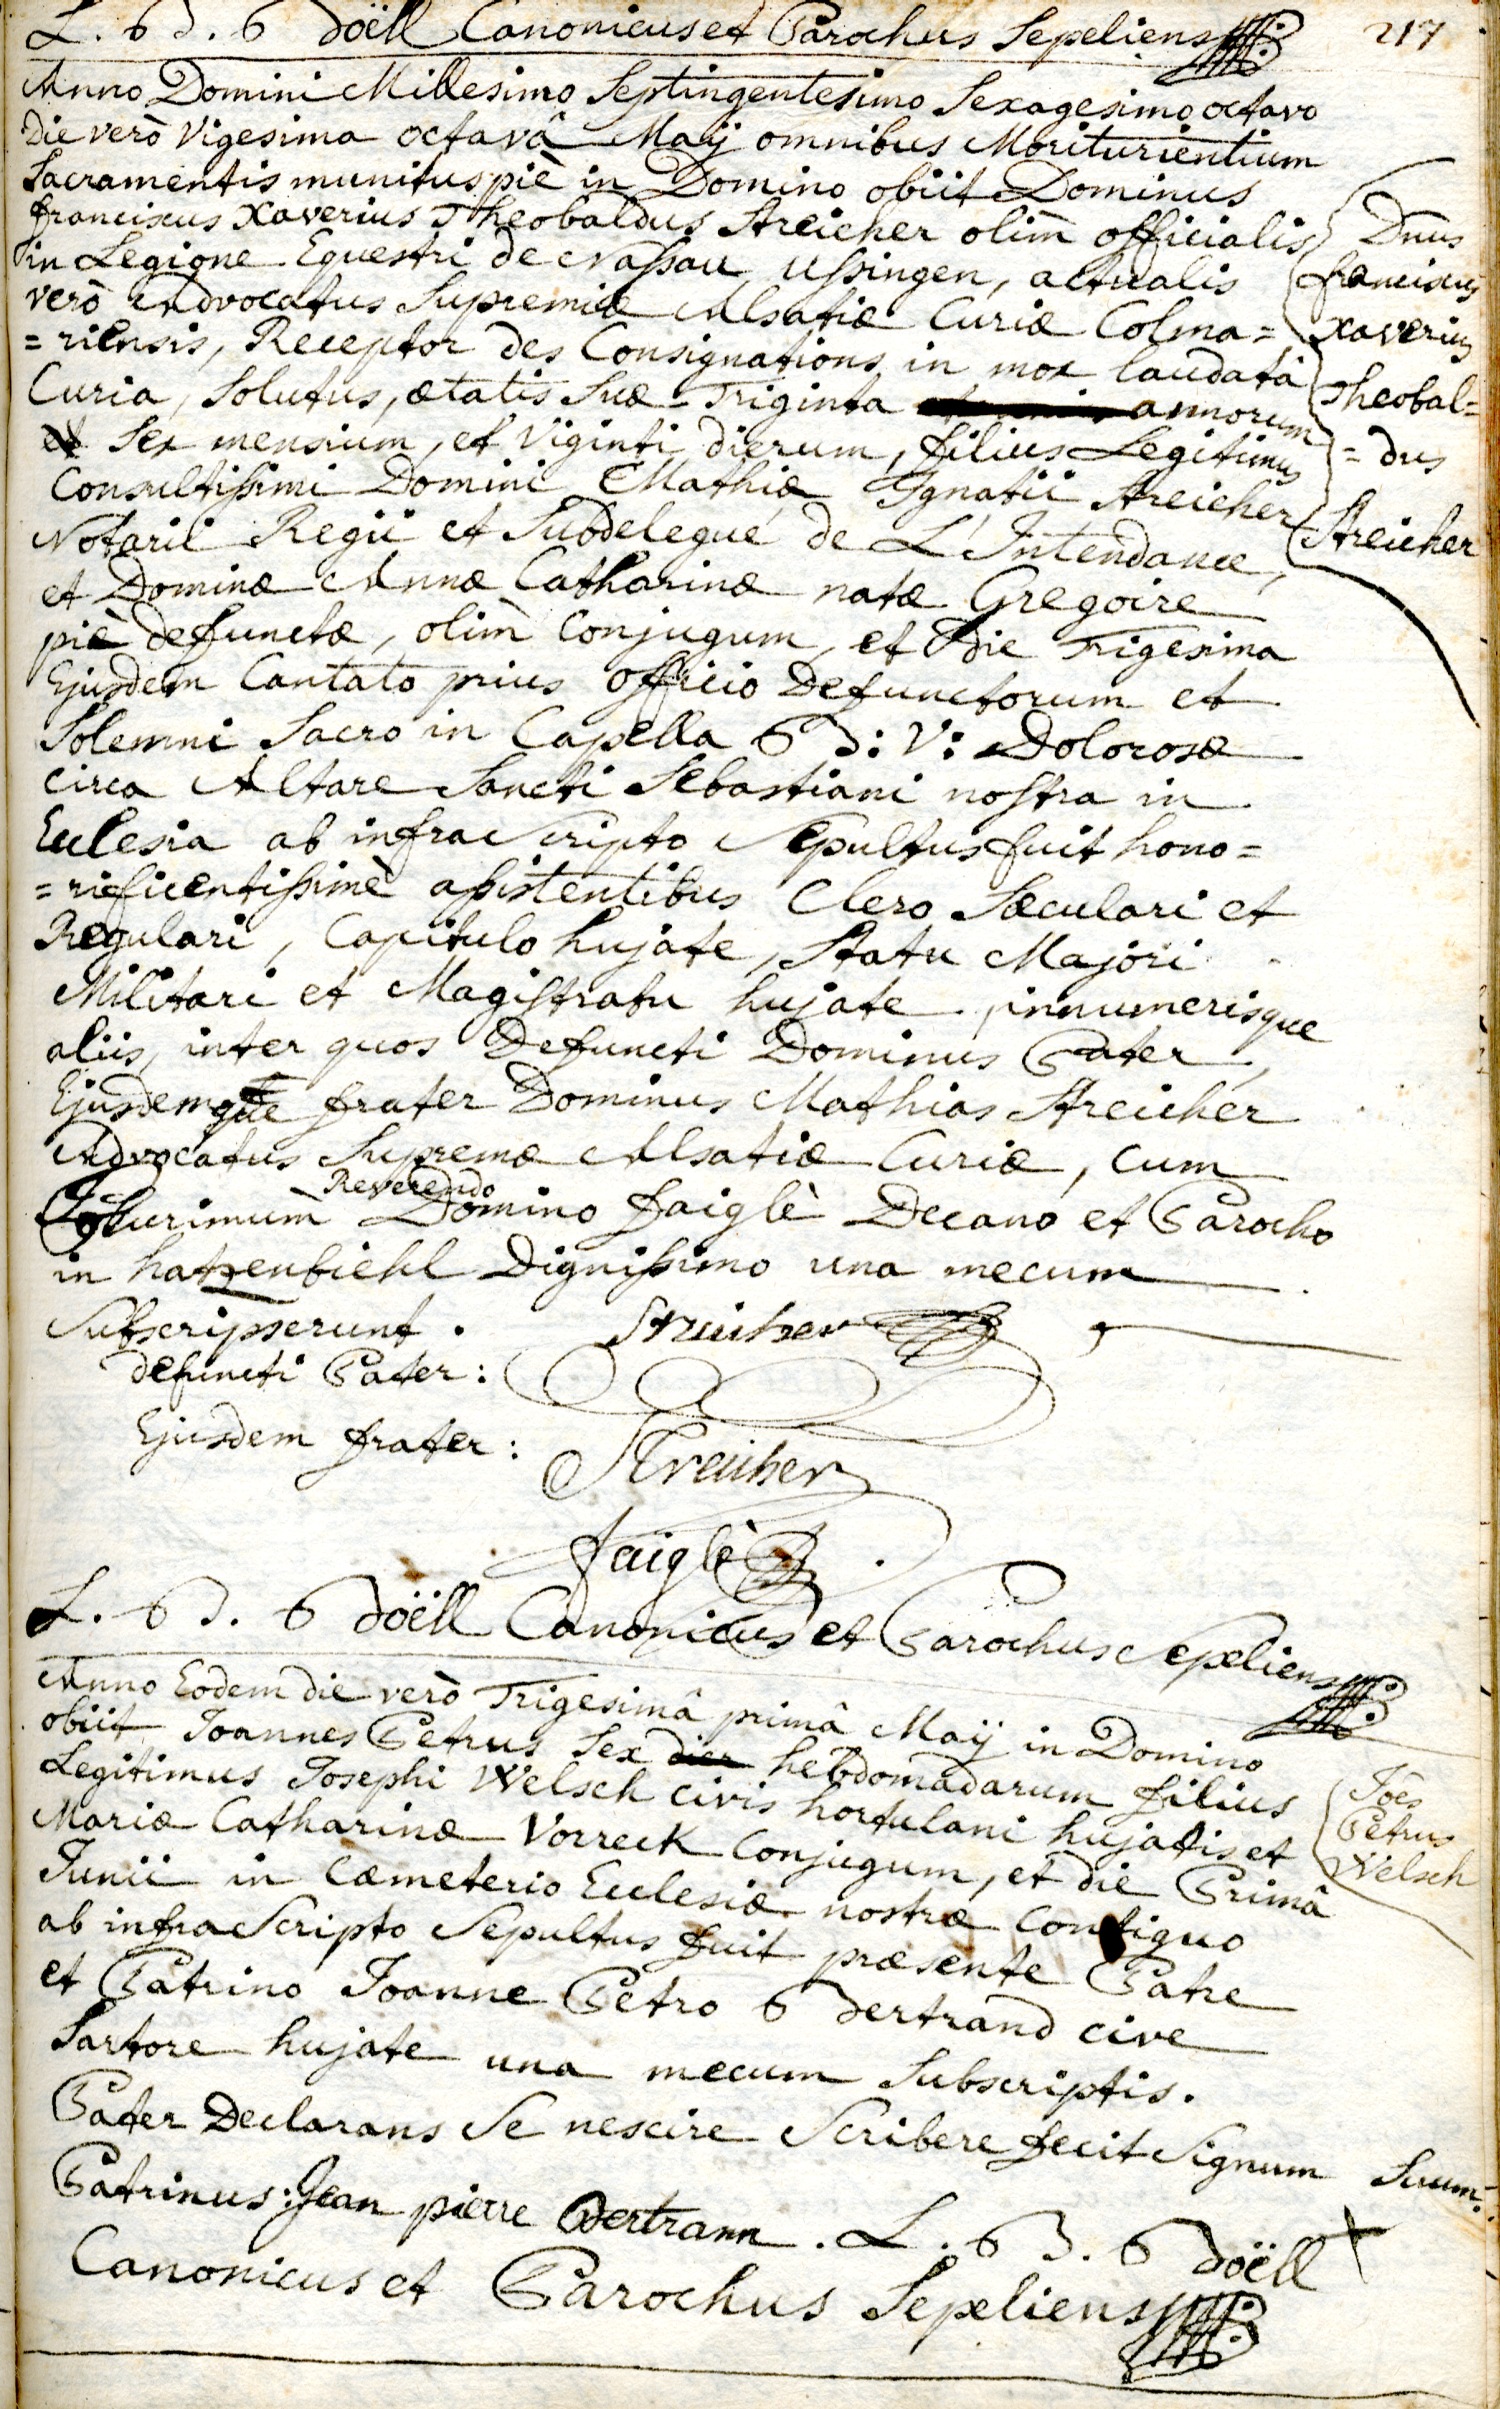 L. B. Boëll Canonicus et Parochus Sepeliens
217
Anno Domini Millesimo Septingentesimo Sexagesimo octavo
Die verò Vigesima octavâ Maÿ omnibus Moriturientium
Sacramentis munitus piè in Domino obiit Dominus
franciscus Xaverius Theobaldus Streicher olim officialis
in Legione Equestri de Nassau Ussingen, actualis
verò Advocatus Supremiæ Alsatiæ Curiæ Colma=
=riensis, Receptor des Consignations in mox laudatâ
Curia, Solutus, ætatis Suæ Triginta annorum
et Sex mensium, et Viginti dierum, filius Legitimus
Consultissimi Domini Mathiæ Ignatii Streicher
Notarii Regii et Subdelegué de L'Intendance,
et Dominæ Annæ Catharinæ natæ Gregoire
piè defunctæ, olim Conjugum, et Die Trigesima
Ejusdem Cantato prius officio Defunctorum et
Solemni Sacro in Capella B: V: Dolorosæ
Circa Altare Sancti Sebastiani nostra in
Ecclesia ab infra Scripto Sepultus fuit hono=
=rificentissimè assistentibus Clero Sæculari et
Regulari, Capitulo hujate, Statu Majori
Militari et Magistratu hujate, innumerisque
aliis, inter quos Defuncti Dominus Pater,
Ejusdemque frater Dominus Mathias Streicher
Advocatus Supremæ Alsatiæ Curiæ, cum
Plurimum Reverendo Domino faiglè Decano et Parocho
in hatzenbiehl Dignissimo una mecum
Subscripserunt. Streicher
defuncti Pater:
Ejusdem frater: Streicher
faiglè
Dnus
franciscus
Xaverius
Theobal=
=dus
Streicher
L. B. Boëll Canonicus et Parochus Sepeliens
Anno Eodem die verò Trigesimâ primâ Maÿ in Domino
obiit Joannes Petrus Sex dier hebdomadarum filius
Legitimus Josephi Welsch civis hortulani hujatis et
Mariæ Catharinæ Vorreck Conjugum, et die Primâ
Junii in Cæmeterio Ecclesiæ nostræ Contiguo
ab infra Scripto Sepultus fuit præsente Patre
et Patrino Joanne Petro Bertrand cive
Sartore hujate una mecum Subscriptis.
Pater Declarans Se nescire Scribere fecit Signum Suum:
Patrinus: Jean pierre Bertrann. L. B. Boëll +
Canonicus et Parochus Sepeliens
Joês
Petrus
Welsch